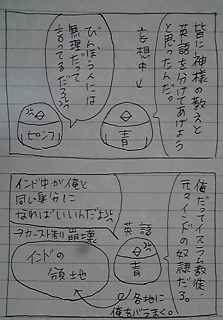 皆に神様の教えと
英語を分けてあげよう
と思ったんだ。
妄想中→
青
びんぼう人には
無理だって
言ってるだろ
ピンク
俺だってイスラム教徒・
元々インドの奴隷だろ。
英語
青
インド中が俺と
同じ身分に
なればいいんだよ
カースト制崩壊
インドの
領地
各地に
俺をバラまく。